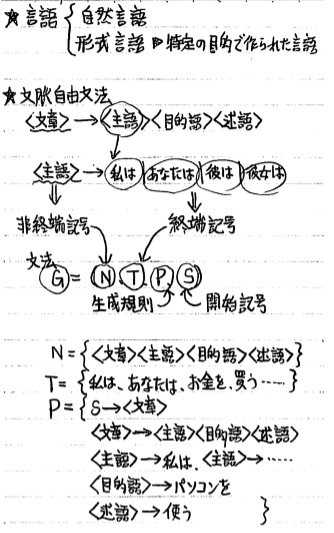 ★言語 { 自然言語
形式言語 ⇨ 特定の目的で作られた言語
★文脈自由文法
<文章> → <主語><目的語><述語>
<主語> → 私は | あなたは | 彼は | 彼女は
非終端記号 終端記号
文法
G = (N, T, P, S)
生成規則 開始記号
N = {<文章><主語><目的語><述語>}
T = {私は、あなたは、お金を、買う……}
P = {S→<文章>
<文章>→<主語><目的語><述語>
<主語>→私は、<主語>→……
<目的語>→パソコンを
<述語>→使う }